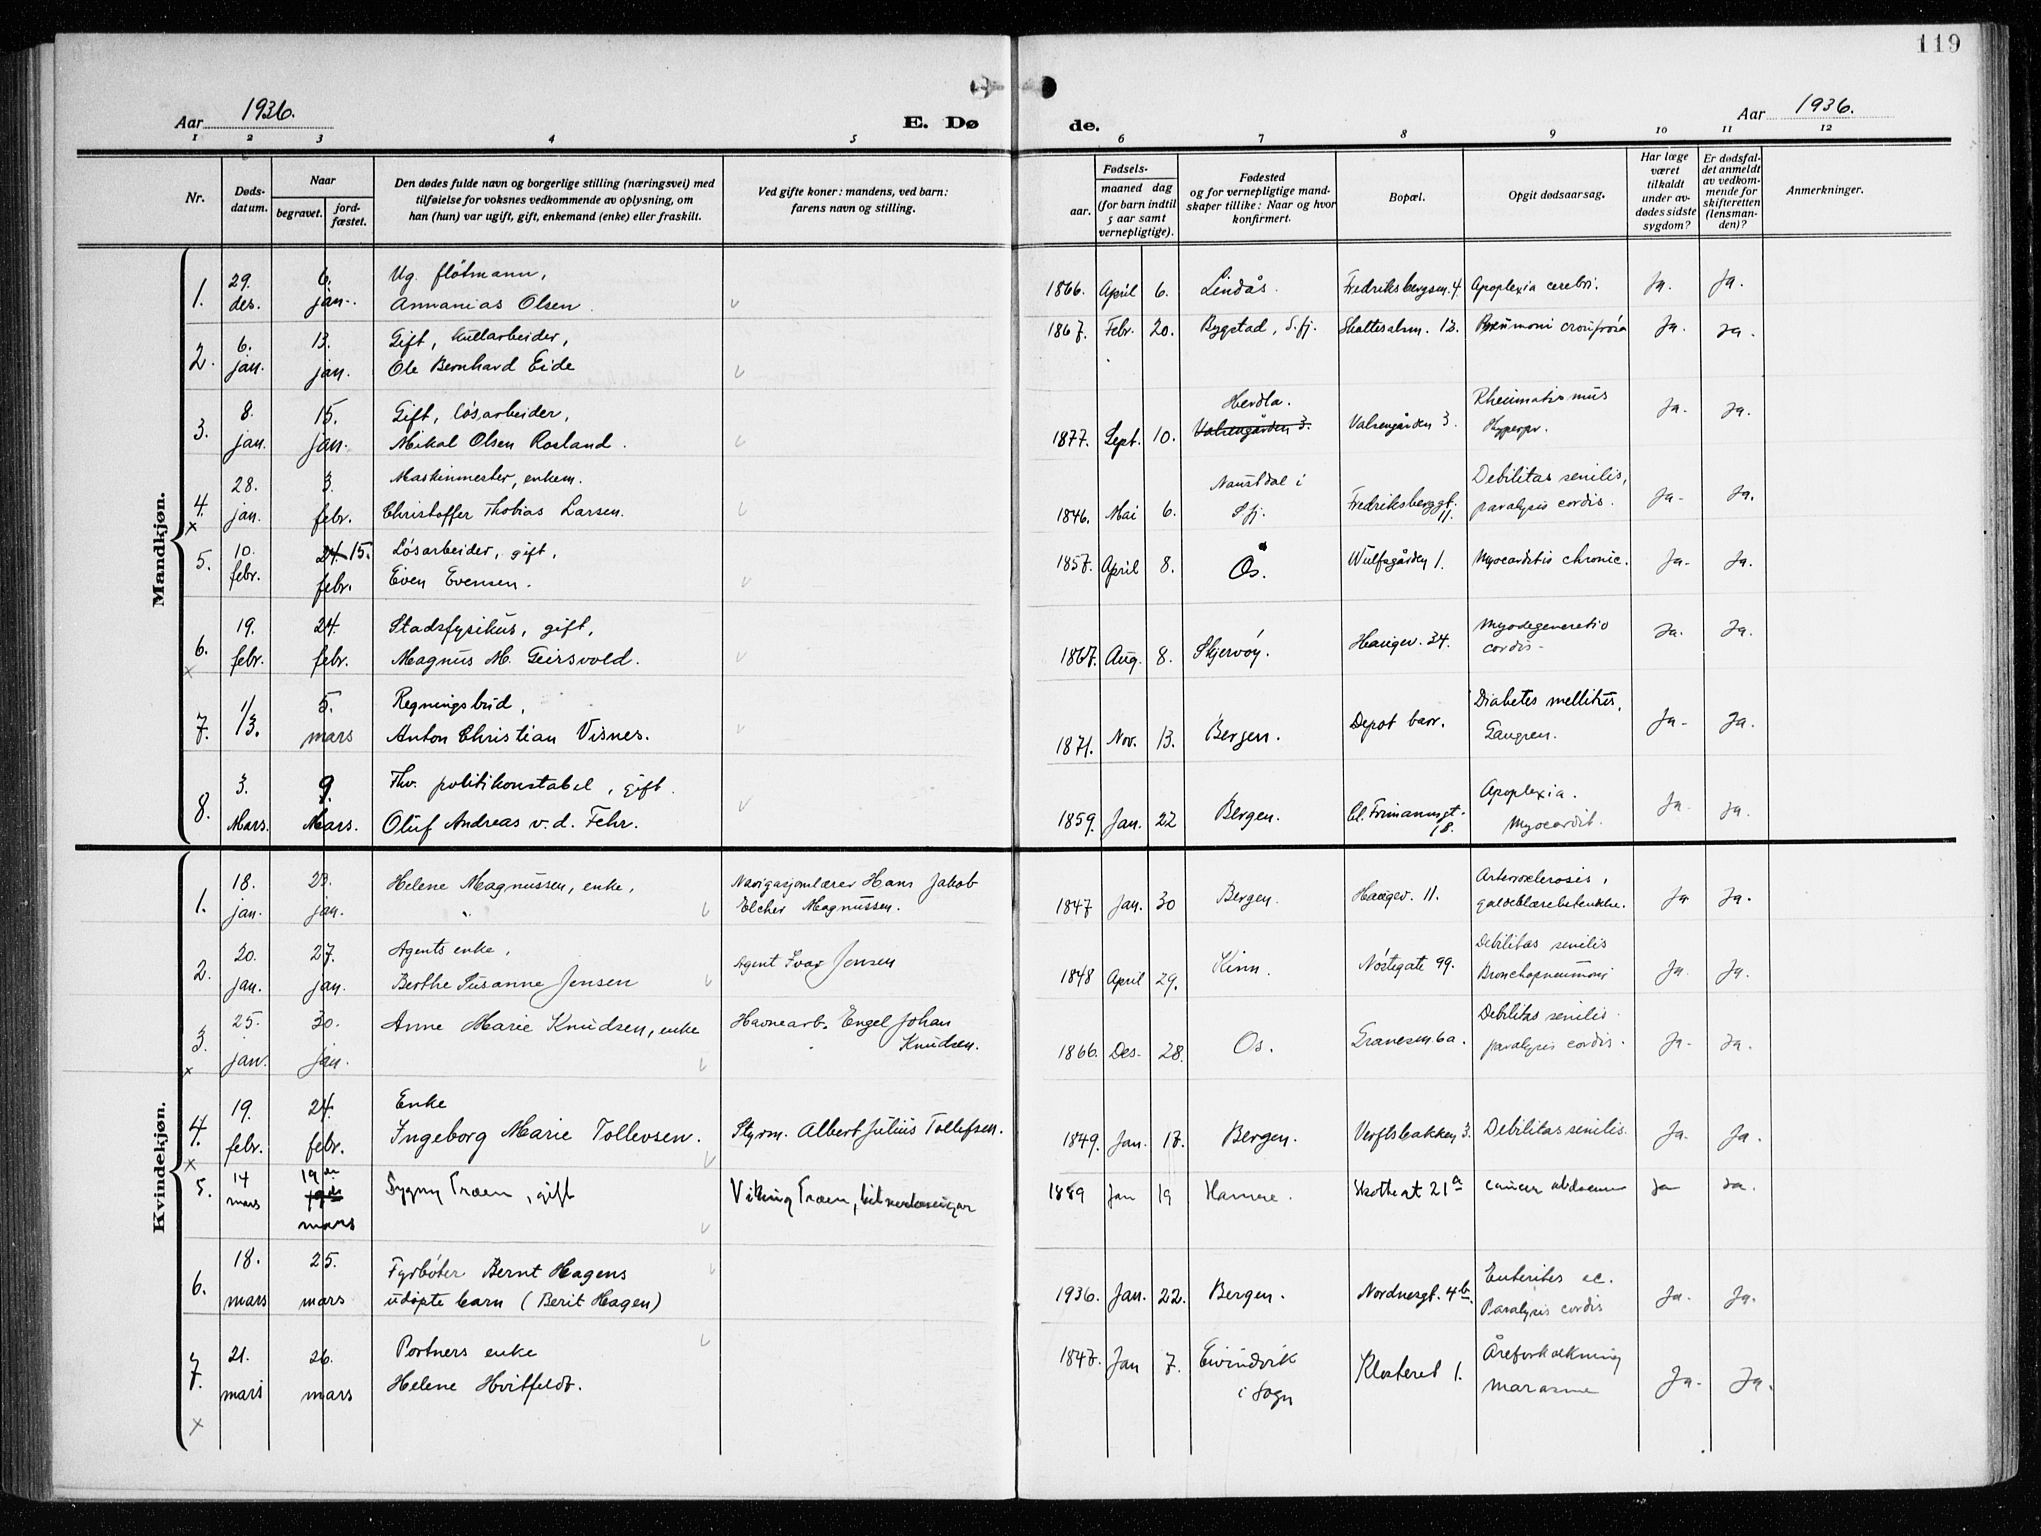 119
Aar 1936.
E. Dø
de.
Aar 1936.
1 2 3 4 5 6 7 8 9 10 11 12
Nr.
Døds-
datum.
Naar
begravet.
jord-
fæstet.
Den dødes fulde navn og borgerlige stilling (næringsvei) med
tilføielse for voksnes vedkommende av oplysning, om
han (hun) var ugift, gift, enkemand (enke) eller fraskilt.
Ved gifte koner: mandens, ved barn:
farens navn og stilling.
Fødsels-
aar.
maaned dag
(for barn indtil
5 aar samt
vernepligtige).
Fødested
og for vernepligtige mand-
skaper tillike: Naar og hvor
konfirmert.
Bopæl.
Opgit dødsaarsag.
Har læge
været
tilkaldt
under av-
dødes sidste
sygdom?
Er dødsfal-
det anmeldt
av vedkom-
mende for
skifteretten
(lensman-
den)?
Anmerkninger.
Mandkjøn.
1. 29. des. 6. jan. Ug. fløtmann,
Annanias Olsen
1866. April 6. Lindås. Fredriksbergsm. 4. Apoplexia cerebri. Ja. Ja.
2. 6. jan. 13. jan. Gift, kullarbeider,
Ole Bernhard Eide
1867. Febr. 20. Bygstad, S.fj. Skottesalm. 12. Pneumoni crouposa Ja. Ja.
3. 8. jan. 15. jan. Gift, løsarbeider,
Mikal Olsen Rosland.
1877. Sept. 10. Herdla.
Valsengården 3.
Valsengården 3. Rheumatismus
Hyperpr. Ja. Ja.
4. x 28. jan. 3. febr. Maskinmester, enkem.
Christoffer Thobias Larsen.
1846. Mai 6. Naustdal i
S.fj. Fredriksberggt.
11. Debilitas senilis,
paralysis cordis. Ja. Ja.
5. 10. febr. 24. 15. febr. Løsarbeider, gift,
Even Evensen.
1857. April 8. Os. Wulfsgården 1. Myocarditis chronic. Ja. Ja.
6. x 19. febr. 24. febr. Stadsfysikus, gift,
Magnus M. Geirsvold.
1867. Aug. 8. Skjervøy. Haugev. 34. Myodegeneratio
cordis. Ja. Ja.
7. 1/3. 5. mars Regningsbud,
Anton Christian Visnes.
1871. Nov. 13. Bergen. Depot barr. Diabetes mellitus,
Gangren. Ja. Ja.
8. 3. Mars. 9. Mars. Thv. politikonstabel, gift.
Oluf Andreas v. d. Fehr.
1859. Jan. 22 Bergen. Cl. Frimannsgt.
18. Apoplexia.
Myocardit. Ja. Ja.
Kvindekjøn.
1. 18. jan. 23. jan. Helene Magnussen, enke,
Navigasjonlærer Hans Jakob
Elcher Magnussen.
1847 Jan. 30 Bergen. Haugev. 11. Arteriosclerosis,
galdeblærebetendelse. Ja Ja.
2. 20. jan. 27. jan. Agents enke,
Berthe Susanne Jensen
Agent Ivar Jensen
1848 April 29. Kinn. Nøstegate 99. Debilitas senilis
Bronchopneumoni Ja. Ja.
3. x 25. jan. 30. jan. Anne Marie Knudsen, enke
Havnearb. Engel Johan
Knudsen.
1866. Des. 28. Os. Granesm 6a. Debilitas senilis.
paralysis cordis. Ja. Ja.
4. x 19. febr. 24. febr. Enke
Ingeborg Marie Tollevsen.
Styrm. Albert Julius Tollefsen.
1849. Jan. 17. Bergen. Verftsbakken 3. Debilitas senilis. Ja. Ja.
5. 14 mars 19de
19de
mars Sygny Træen, gift
Viking Træen,
1889 Jan 19 Hamre. Skottegt 21a cancer abdomen Ja Ja.
6. 18. mars 25. mars Fyrbøter Bernt Hagens
udøpte barn (Berit Hagen)
1936. Jan. 22. Bergen. Nordnesgt. 4b. Enterites ac.
Paralysis cordis Ja. Ja.
7. x 21. mars 26. mars Portners enke
Helene Hvitfeldt.
1847. Jan 7. Eivindvik
i Sogn Klosteret 1. Åreforkalkning
marasme Ja. Ja.